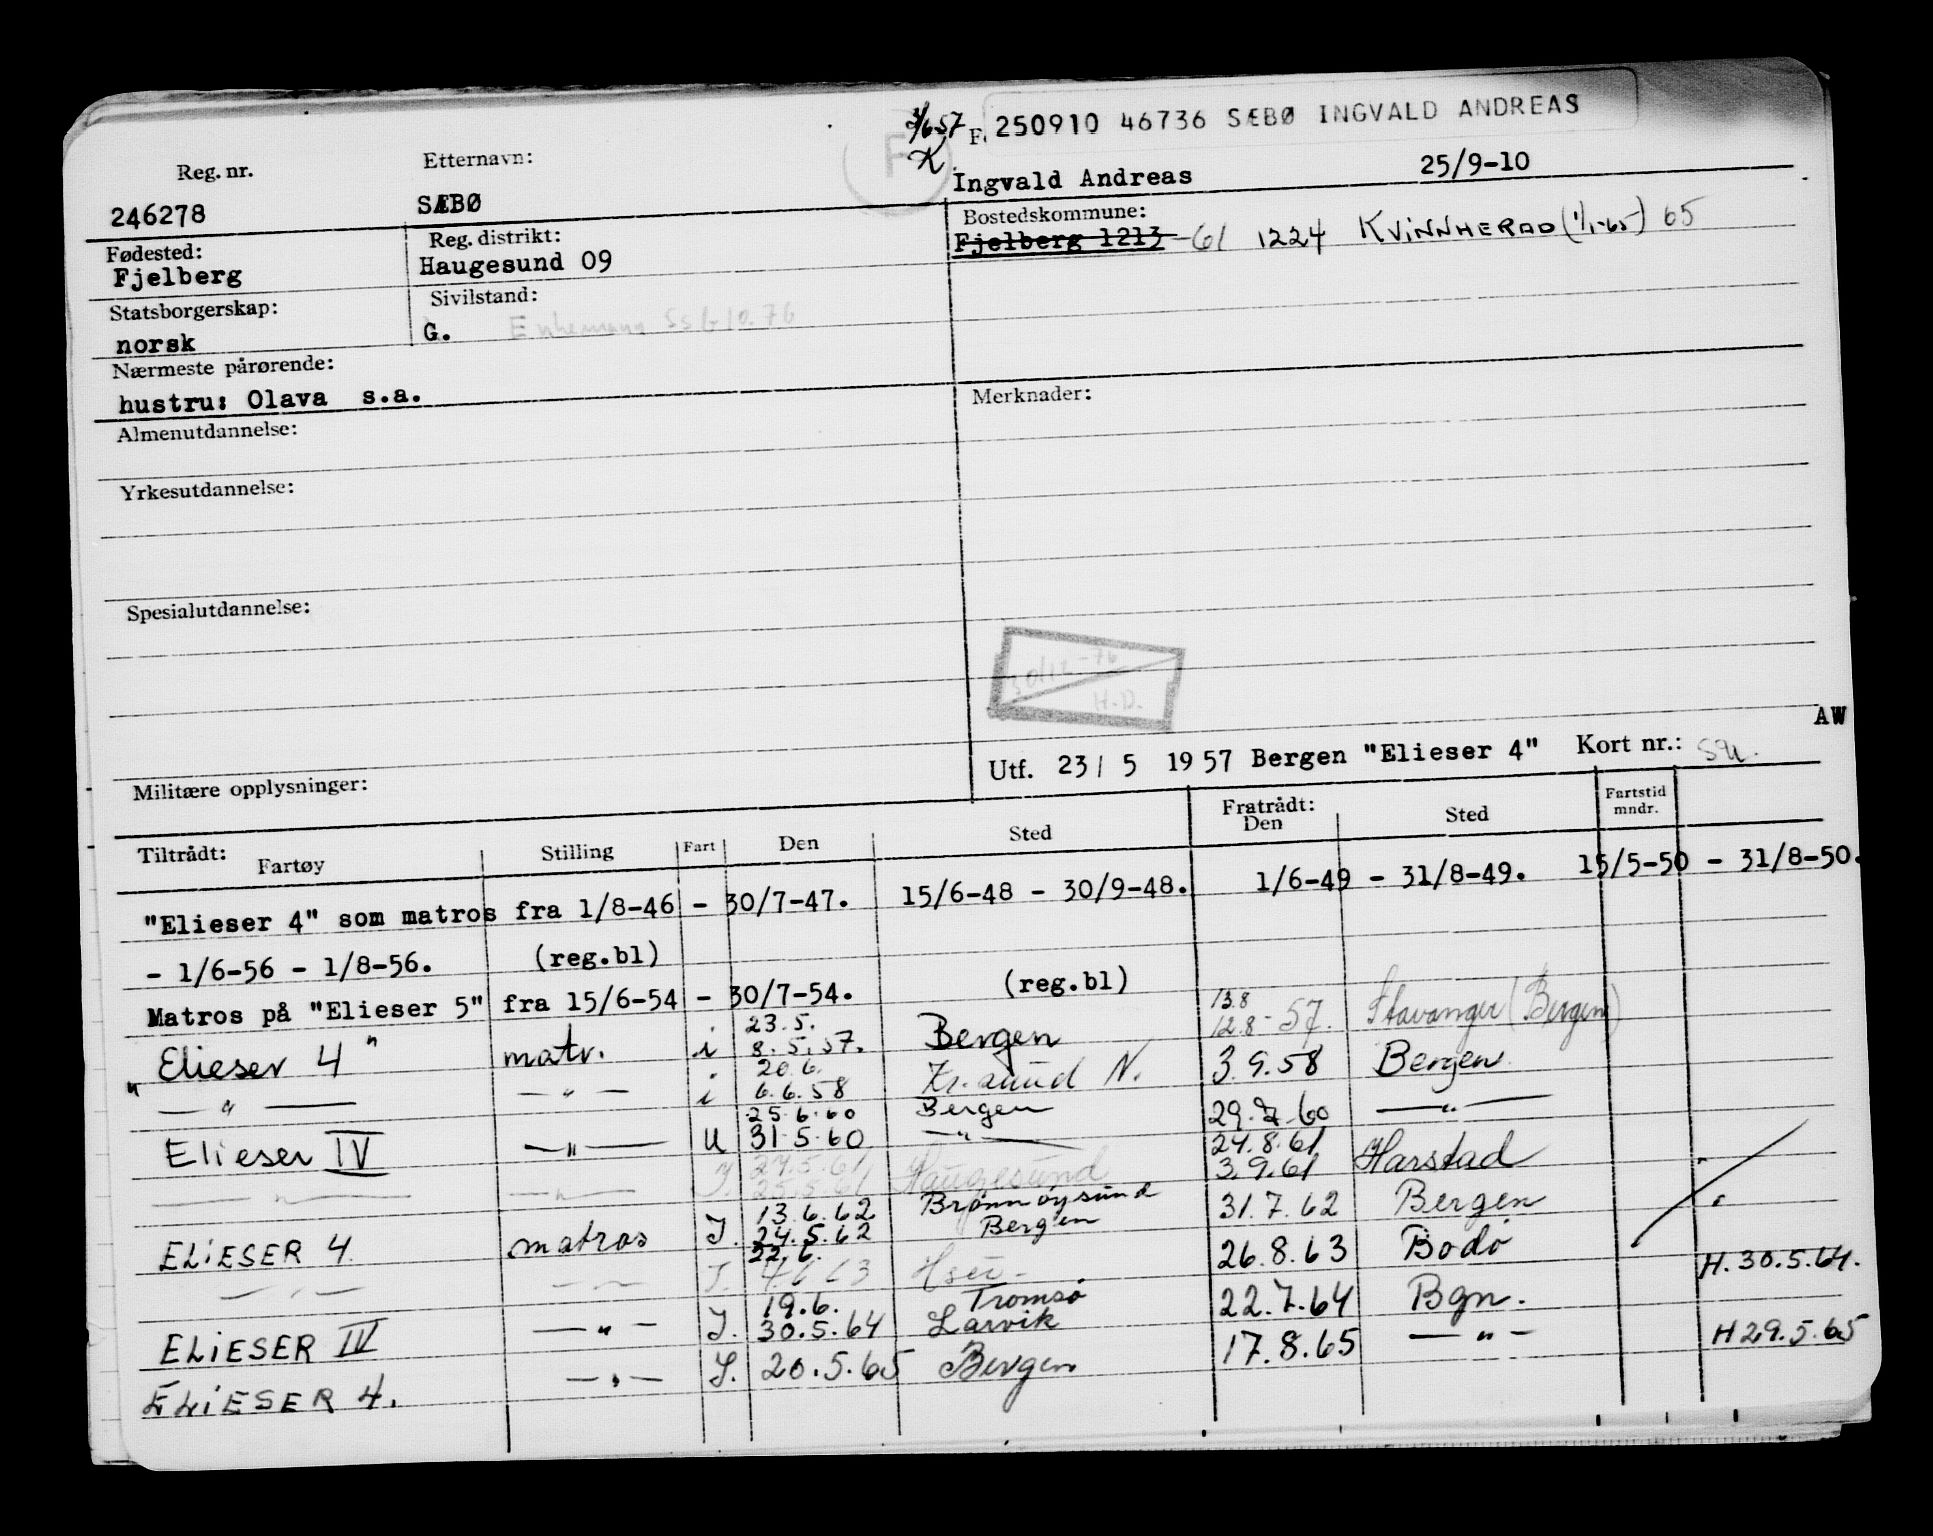 3/6 57 F. 250910 46736 SÆBØ INGVALD ANDREAS
K.
Reg. nr. Etternavn:
246278 SÆBØ Ingvald Andreas 25/9-10
Fødested: Reg. distrikt: Bostedskommune:
Fjelberg Haugesund 09 Fjelberg 1213 -61 1224 KVINNHERAD (1/1-65) 65
Statsborgerskap: Sivilstand:
norsk G. Enkemann
Nærmeste pårørende:
hustru: Olava s.a.
Almenutdannelse: Merknader:
Yrkesutdannelse:
Spesialutdannelse:
30/12-76
H.D.
AW
Militære opplysninger: Utf. 23/ 5 1957 Bergen "Elieser 4" Kort nr.:
Tiltrådt: Fartøy Stilling Fart Den Sted Fratrådt: Den Sted Fartstid mndr.
"Elieser 4" som matros fra 1/8-46 - 30/7-47. 15/6-48 - 30/9-48. 1/6-49 - 31/8-49. 15/5-50 - 31/8-50.
- 1/6-56 - 1/8-56. (reg.bl)
Matros på "Elieser 5" fra 15/6-54 - 30/7-54. (reg.bl)
23.5. 13.8
"Elieser 4" matr. i 8.5.57. Bergen 12.8-57. Stavanger (Bergen)
20.6.
— " — — " — i 6.6.58 Kr.sund N. 3.9.58 Bergen
25.6.60 Bergen
Elieser IV — " — U 31.5.60 — " — 29.7.60 — " —
27.5.61 24.8.61
— " — — " — I. 25.5.61 Haugesund 3.9.61 Harstad
13.6.62 Brønnøysund
ELIESER 4 matros I. 24.5.62 Bergen 31.7.62 Bergen
22.6.
— " — — " — I. 4.6.63 26.8.63 Bodø
19.6. Tromsø
ELIESER IV — " — I. 30.5.64 Larvik 22.7.64 Bgn. H. 30.5.64.
ELIESER 4. — " — I. 20.5.65 Bergen 17.8.65 — " — H 29.5.65